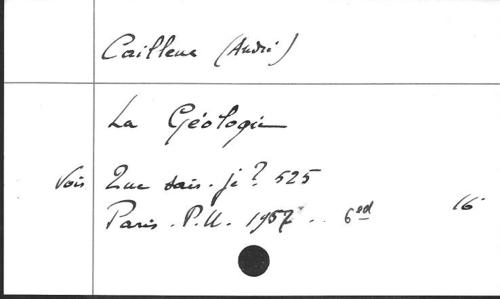 Cailleux (André)
La Géologie
Vois Que sais-je ? 525
Paris. P.U. 1957 .. 6ed 16°